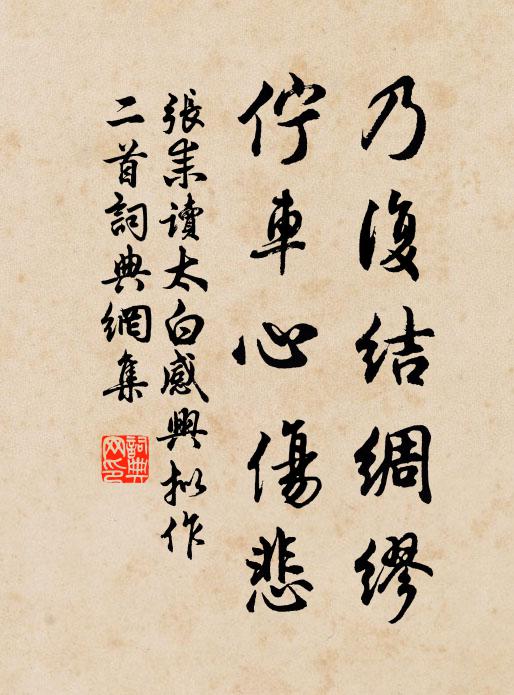 乃復結綢繆
佇車心傷悲
張耒讀太白感興拟作
二首詞典網集
詞典网印